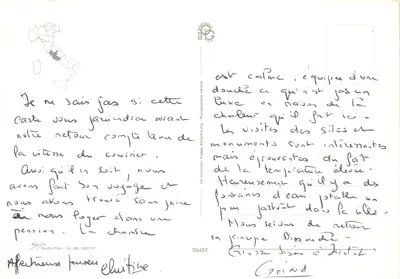 Je ne sais pas si cette
carte vous parviendra avant
notre retour compte tenu de
la vitesse du courrier.
Quoi qu'il en soit, nous
avons fait bon voyage et
nous avons trouvé sans peine
à nous loger dans une
pension. La chambre
Affectueuses pensées
Christine
est calme, équipée d'une
douche ce qui n'est pas un
luxe en raison de la
chaleur qu'il fait ici.
Les visites des sites et
monuments sont intéressantes
mais éprouvantes du fait
de la température élevée.
Heureusement qu'il y a des
fontaines d'eau potable un
peu partout dans la ville.
Nous serons de retour
en principe Dimanche.
Grosses bises à